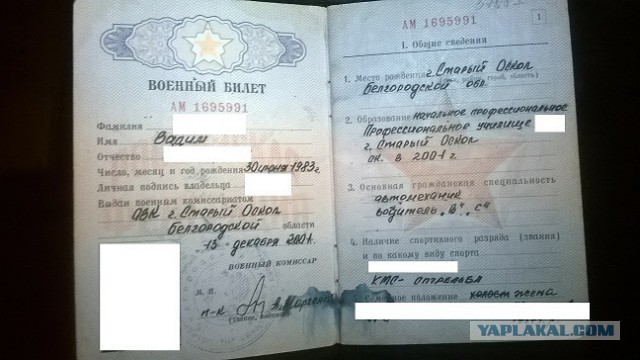 ВОЕННЫЙ БИЛЕТ
АМ 1695991
Фамилия
Имя Вадим
Отчество
Число, месяц и год рождения 30 июня 1983г
Личная подпись владельца
Выдан военным комиссариатом
ОВК г. Старый Оскол
Белгородской области
"13" декабря 2001.
ВОЕННЫЙ КОМИССАР
М. П.
п-к
АМ 1695991
1
I. Общие сведения
1. Место рождения г. Старый Оскол
Белгородской обл
2. Образование начальное профессиональное
Профессиональное училище
г. Старый Оскол
ок. в 2001 г.
3. Основная гражданская специальность
автомеханик
водитель "В", "С"
4. Наличие спортивного разряда (звания)
и по какому виду спорта
КМС - стрельба
5. Семейное положение холост жена
YAPLAKAL.COM